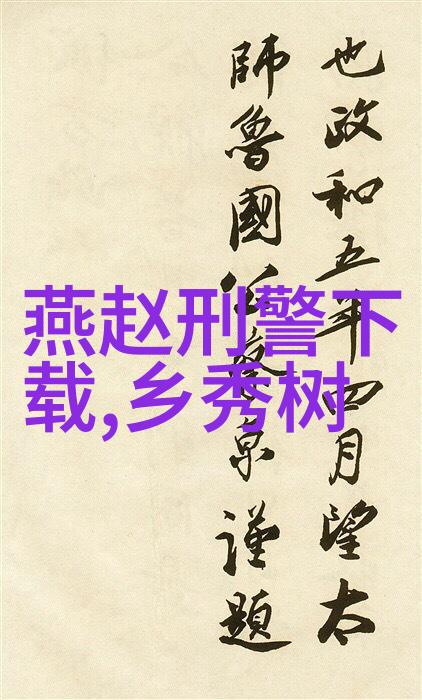 燕赵刑警下
载,乡秀树
也政和五年四月望太
師魯國公蔡京謹題